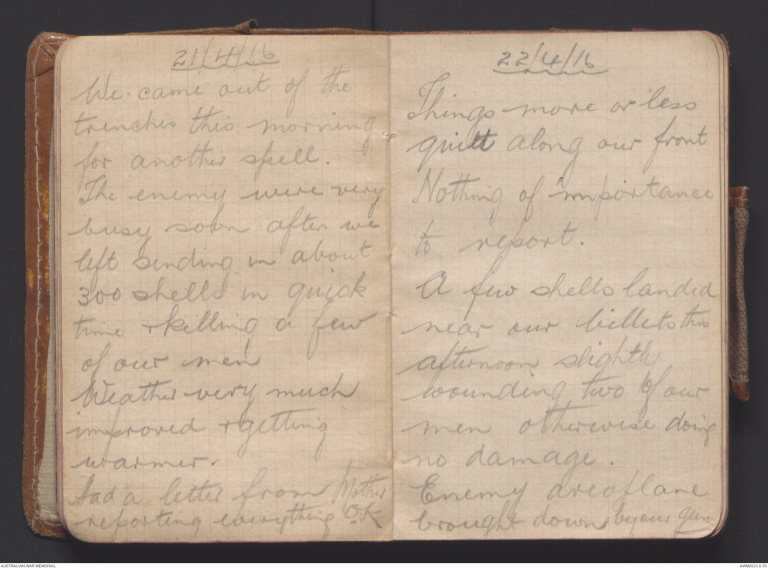 21/4/16
We came out of the
trenches this morning
for another spell.
The enemy were very
busy soon after we
left sending in about
300 shells in quick
time + killing a few
of our men
Weather very much
improved + getting
warmer.
Had a letter from Mother
reporting everything O.K
22/4/16
Things more or less
quiett along our front
Nothing of importance
to report.
A few shells landed
near our billets this
afternoon slightly
wounding two of our
men otherwise doing
no damage.
Enemy areoplane
brought down by our guns
AUSTRALIAN WAR MEMORIAL